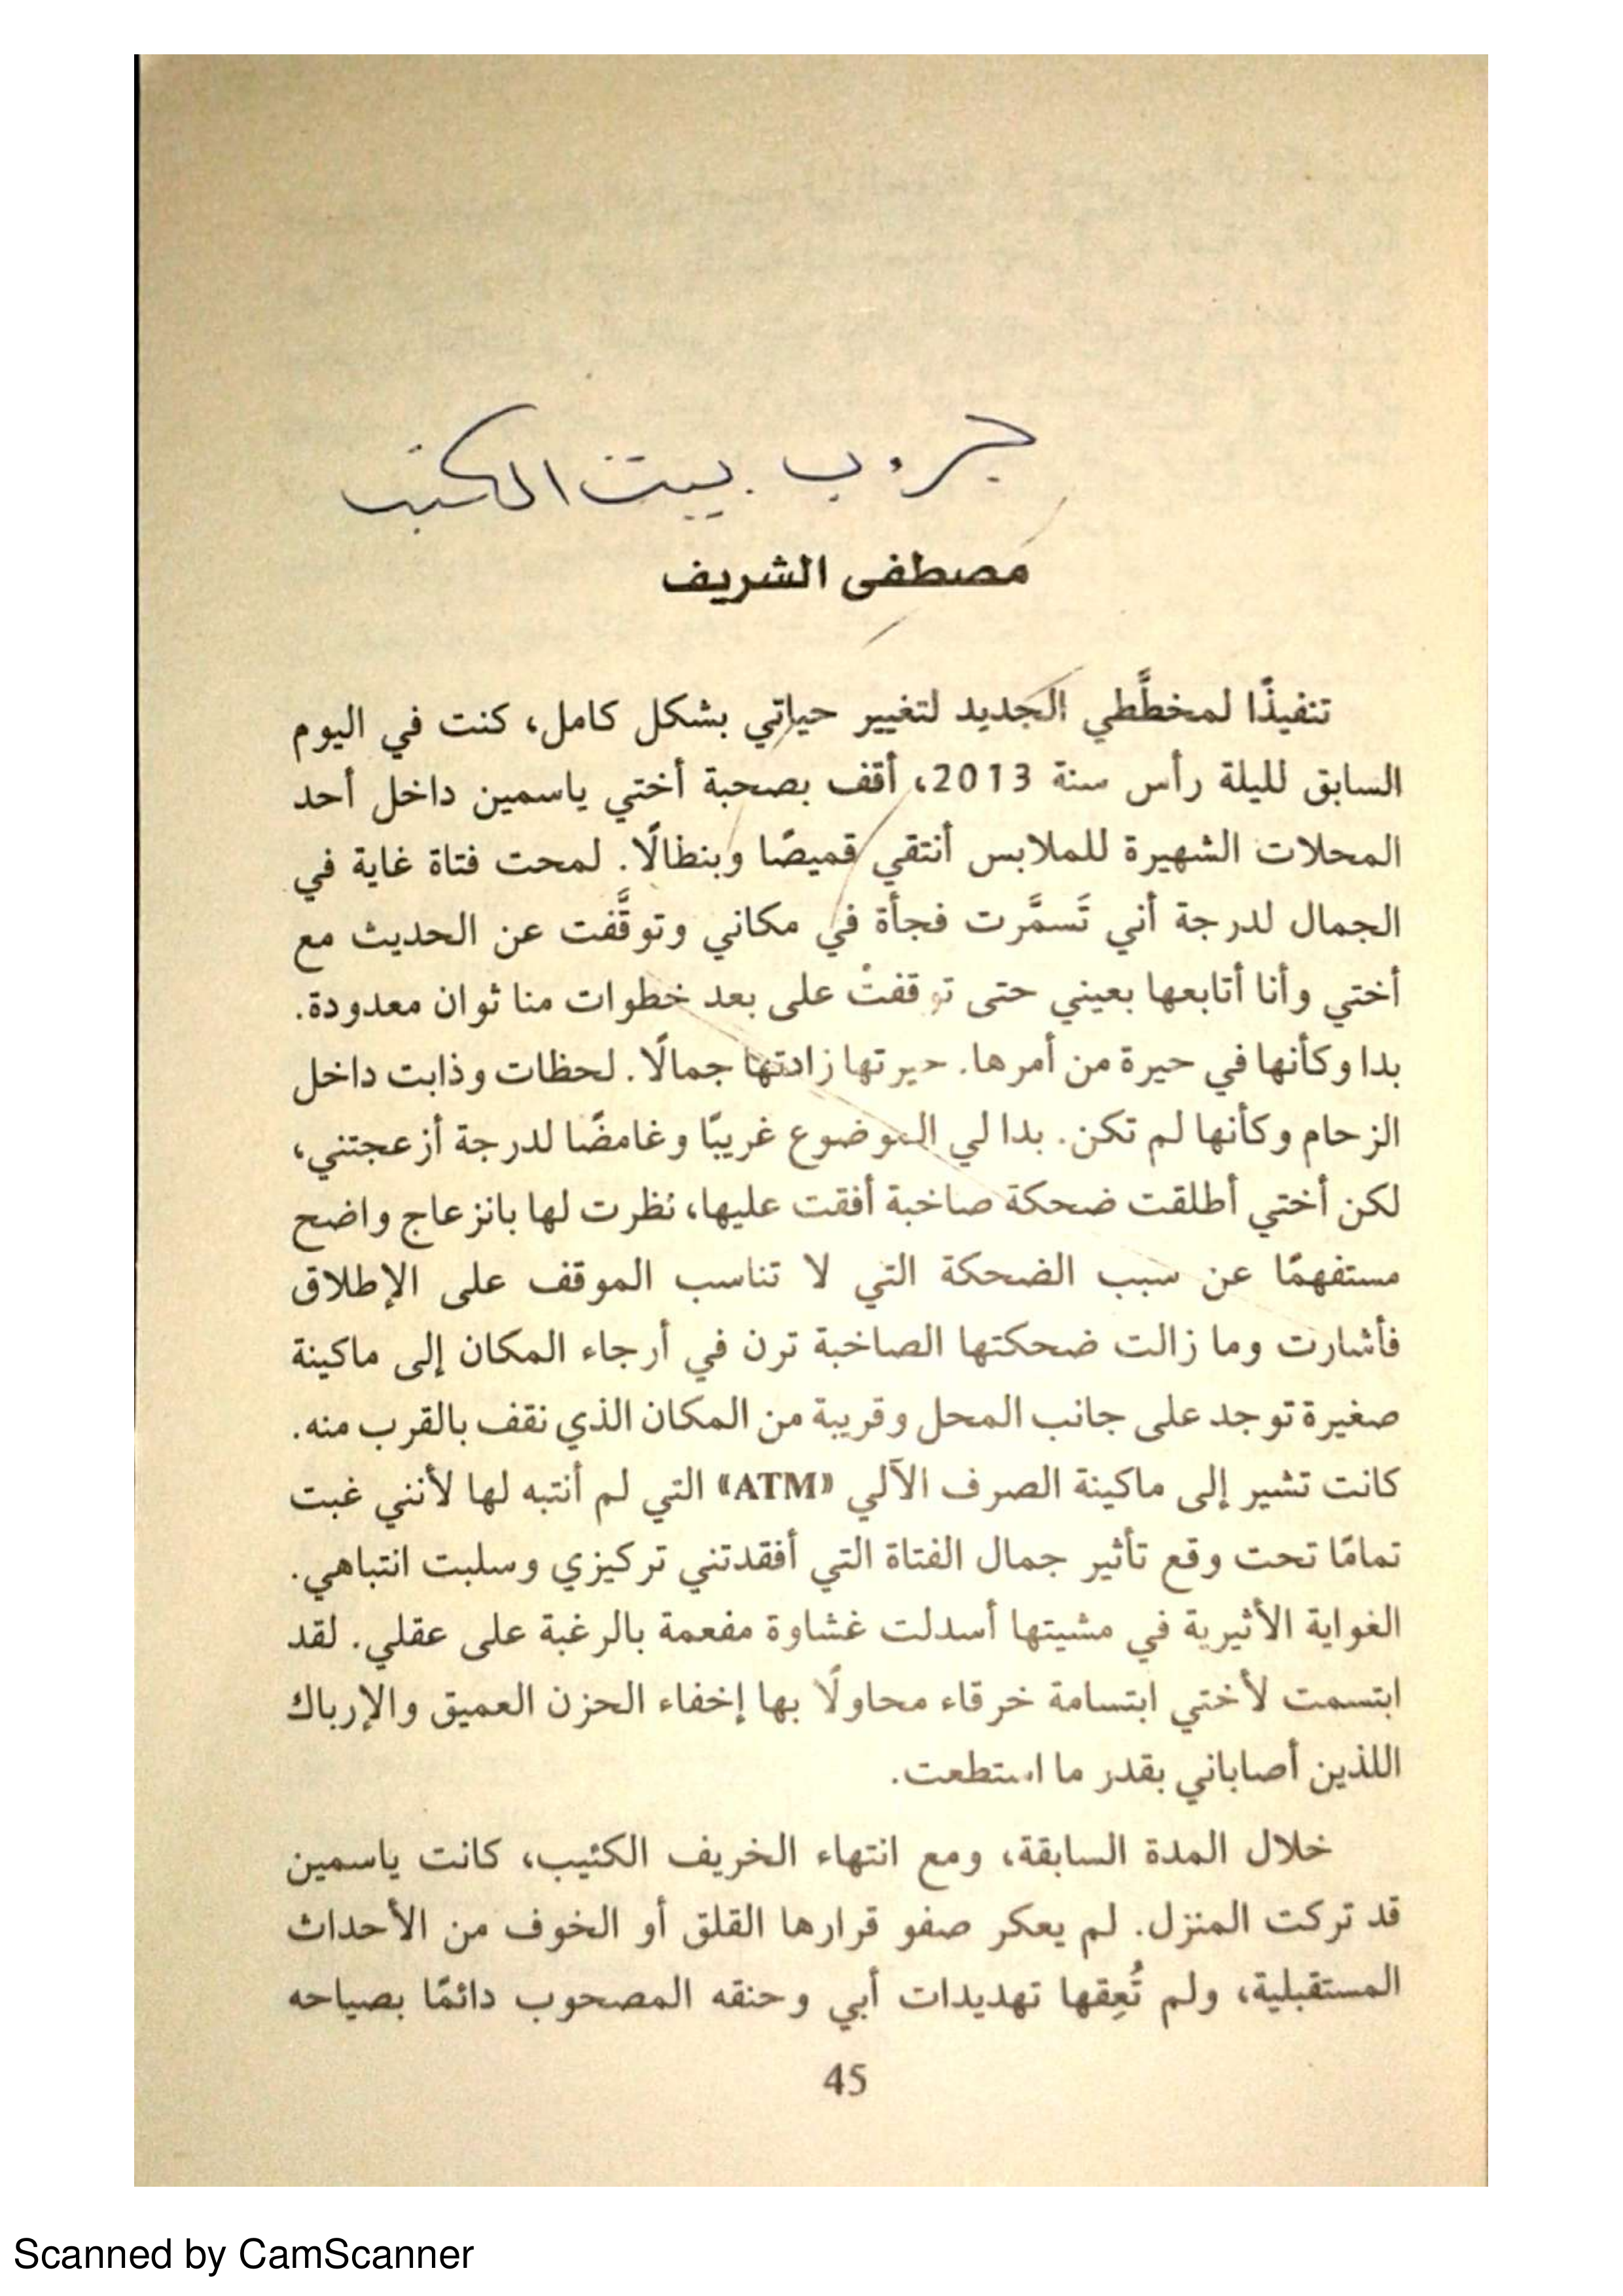 جروب بيت الكتب
مصطفى الشريف
تنفيذًا لمخطَّطي الجديد لتغيير حياتي بشكل كامل، كنت في اليوم
السابق لليلة رأس سنة 2013، أقف بصحبة أختي ياسمين داخل أحد
المحلات الشهيرة للملابس أنتقي قميصًا وبنطالًا. لمحت فتاة غاية في
الجمال لدرجة أني تَسمَّرت فجأة في مكاني وتوقَّفت عن الحديث مع
أختي وأنا أتابعها بعيني حتى توقفتْ على بعد خطوات منا ثوان معدودة.
بدا وكأنها في حيرة من أمرها. حيرتها زادتها جمالًا. لحظات وذابت داخل
الزحام وكأنها لم تكن. بدا لي الموضوع غريبًا وغامضًا لدرجة أزعجتني،
لكن أختي أطلقت ضحكة صاخبة أفقت عليها، نظرت لها بانزعاج واضح
مستفهمًا عن سبب الضحكة التي لا تناسب الموقف على الإطلاق
فأشارت وما زالت ضحكتها الصاخبة ترن في أرجاء المكان إلى ماكينة
صغيرة توجد على جانب المحل وقريبة من المكان الذي نقف بالقرب منه.
كانت تشير إلى ماكينة الصرف الآلي «ATM» التي لم أنتبه لها لأنني غبت
تمامًا تحت وقع تأثير جمال الفتاة التي أفقدتني تركيزي وسلبت انتباهي.
الغواية الأثيرية في مشيتها أسدلت غشاوة مفعمة بالرغبة على عقلي. لقد
ابتسمت لأختي ابتسامة خرقاء محاولًا بها إخفاء الحزن العميق والإرباك
اللذين أصاباني بقدر ما استطعت.
خلال المدة السابقة، ومع انتهاء الخريف الكئيب، كانت ياسمين
قد تركت المنزل. لم يعكر صفو قرارها القلق أو الخوف من الأحداث
المستقبلية، ولم تُعِقها تهديدات أبي وحنقه المصحوب دائمًا بصياحه
45
Scanned by CamScanner